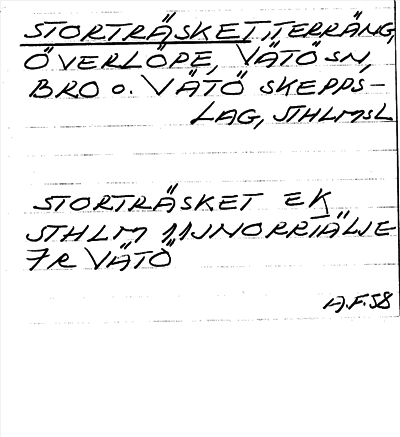 STORTRÄSKET, TERRÄNG,
ÖVERLÖPE, VÄTÖ SN,
BRO o. VÄTÖ SKEPPS-
LAG, STHLMSL
STORTRÄSKET EK
STHLM 11J NORRTÄLJE
7R VÄTÖ
A.F. 58